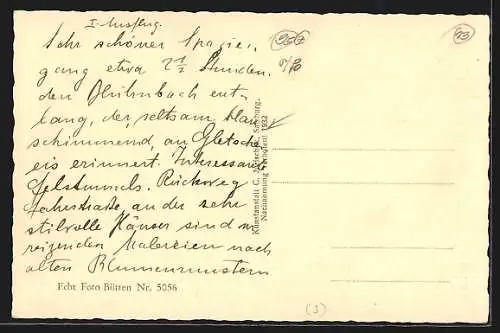 I. Ausflug.
Sehr schöner Spazier-
gang etwa 2 1/2 Stunden.
den Blühnbach ent-
lang, der, seltsam blau
schimmernd, an Gletscher
eis erinnert. Interessante
Rückweg
an der sehr
stilvolle Häuser sind mit
reizenden Malereien nach
alten Blumenmustern
Echt Foto Bütten Nr. 5056
Kunstanstalt C. Salzburg.
Nachahmung verboten! 1932
93
(S)